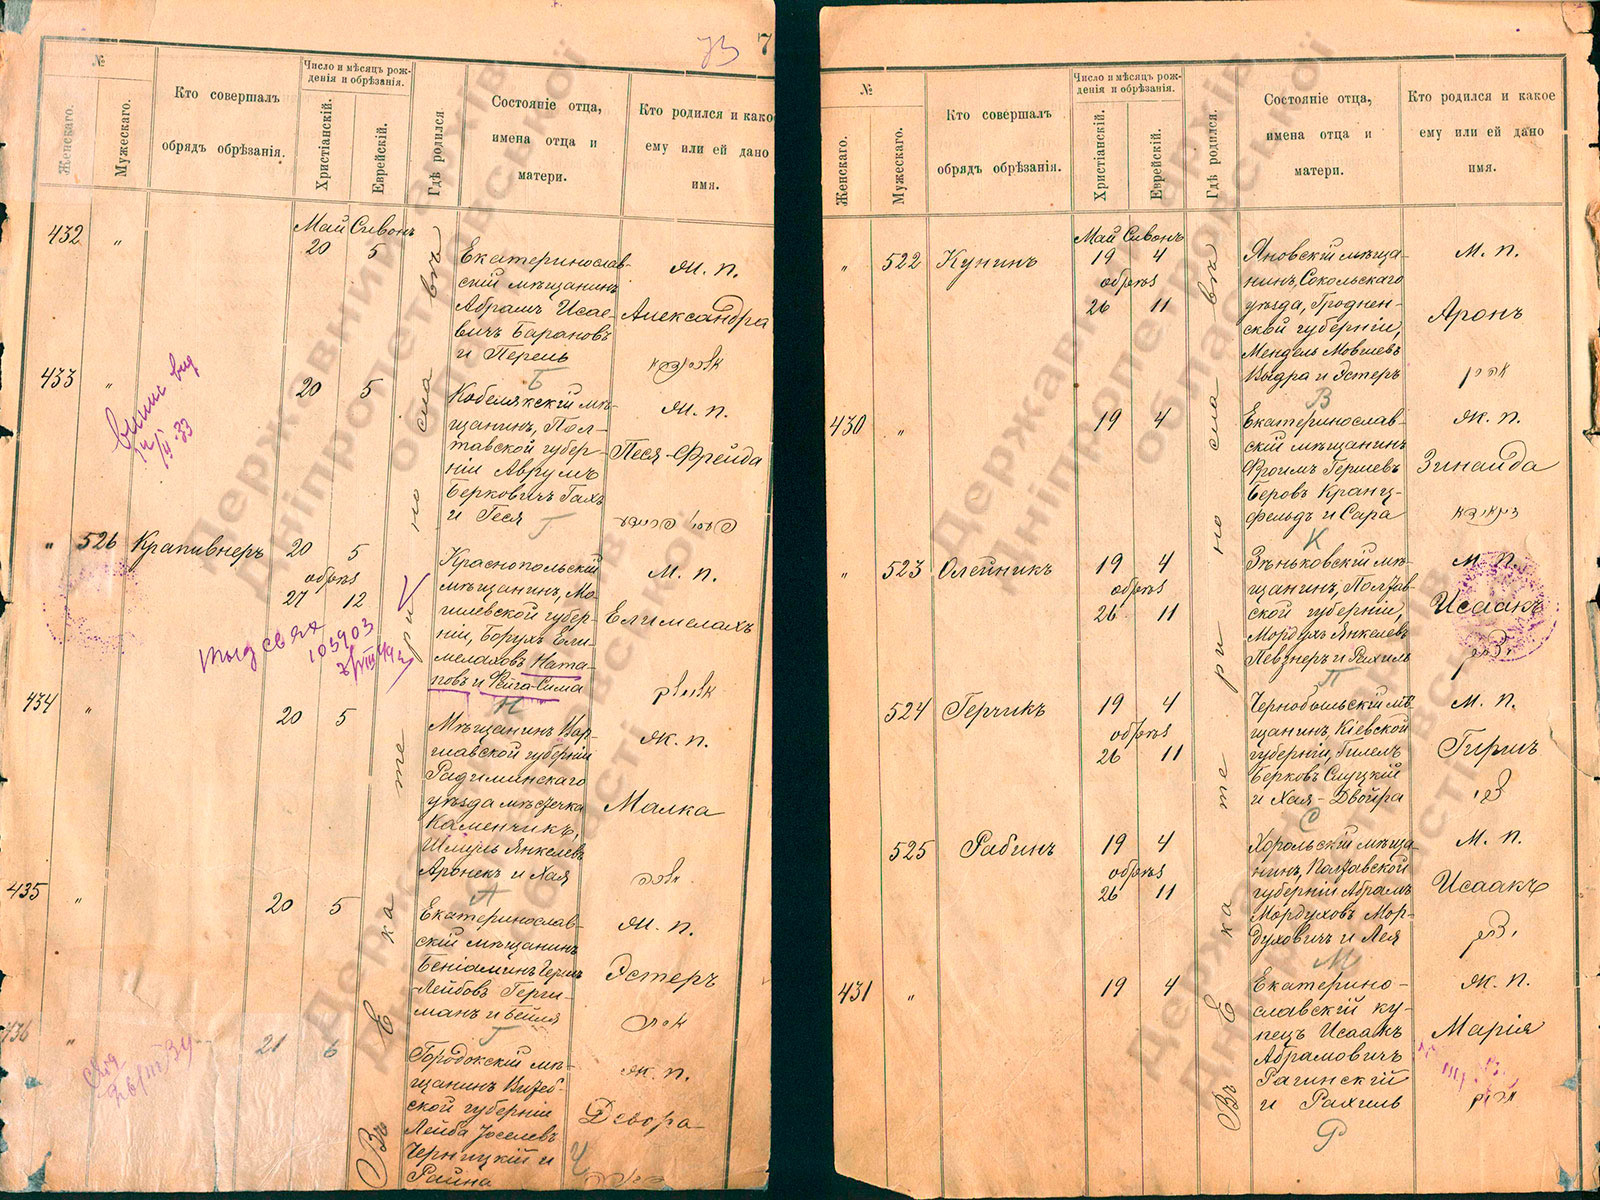 73 7
№
Женскаго.
Мужескаго.
Кто совершалъ
обрядъ обрѣзанія.
Число и мѣсяцъ рож-
денія и обрѣзанія.
Христіанскій.
Еврейскій.
Гдѣ родился.
Состояніе отца,
имена отца и
матери.
Кто родился и какое
ему или ей дано
имя.
Въ Екатеринославѣ
432 „
Май Сивонъ
20 5
Екатеринослав-
скій мѣщанинъ
Абрамъ Исае-
вичъ Барановъ
и Перель
Б
Ж. п.
Александра
433 „
20 5
Кобелякскій мѣ-
щанинъ, Пол-
тавской губер-
ніи Аврумъ
Берковичъ Гахъ
и Геся
Г
Ж. п.
Песя-Фрейда
„ 526 Крапивнеръ
20 5
обрѣз
27 12
Краснопольскій
мѣщанинъ, Мо-
гилевской губер-
ніи, Борухъ Ели-
мелаховъ Ната-
новъ и Фейга-Сима
Н
М. п.
Елимелахъ
103903
434 „
20 5
Мѣщанинъ Вар-
шавской губерніи
Радиминскаго
уѣзда мѣстечка
Каменчикъ,
Шмуль Янкелевъ
Аронекъ и Хая
А
Ж. п.
Малка
435 „
20 5
Екатеринослав-
скій мѣщанинъ
Беніаминъ Герш
Лейбовъ Герци-
манъ и Бейля
Г
Ж. п.
Эстеръ
436 „
21 6
Городокскій мѣ-
щанинъ Витеб-
ской губерніи
Лейба Іоселевъ
Черницкій и
Райна
Ч
Ж. п.
Двора
№
Женскаго.
Мужескаго.
Кто совершалъ
обрядъ обрѣзанія.
Число и мѣсяцъ рож-
денія и обрѣзанія.
Христіанскій.
Еврейскій.
Гдѣ родился.
Состояніе отца,
имена отца и
матери.
Кто родился и какое
ему или ей дано
имя.
Въ Екатеринославѣ
„ 522 Кунинъ
Май Сивонъ
19 4
обрѣз
26 11
Яновскій мѣща-
нинъ, Сокольскаго
уѣзда, Гроднен-
ской губерніи,
Мендель Мовшевъ
Выдра и Эстеръ
В
М. п.
Аронъ
430 „
19 4
Екатеринослав-
скій мѣщанинъ
Фроимъ Гершевъ
Беровъ Кранц-
фельдъ и Сара
К
Ж. п.
Зинаида
„ 523 Олейникъ
19 4
обрѣз
26 11
Зѣньковскій мѣ-
щанинъ, Полтав-
ской губерніи,
Мордухъ Янкелевъ
Певзнеръ и Рахиль
П
М. п.
Исаакъ
524 Герчикъ
19 4
обрѣз
26 11
Чернобыльскій мѣ-
щанинъ, Кіевской
губерніи, Гилель
Берковъ Слуцкій
и Хая-Двойра
С
М. п.
Гиршъ
525 Рабинъ
19 4
обрѣз
26 11
Хорольскій мѣща-
нинъ, Полтавской
губерніи Абрамъ
Мордуховъ Мор-
духовичъ и Лея
М
М. п.
Исаакъ
431 „
19 4
Екатерино-
славскій ку-
пецъ Исаакъ
Абрамовичъ
Рагинскій
и Рахиль
Р
Ж. п.
Марія